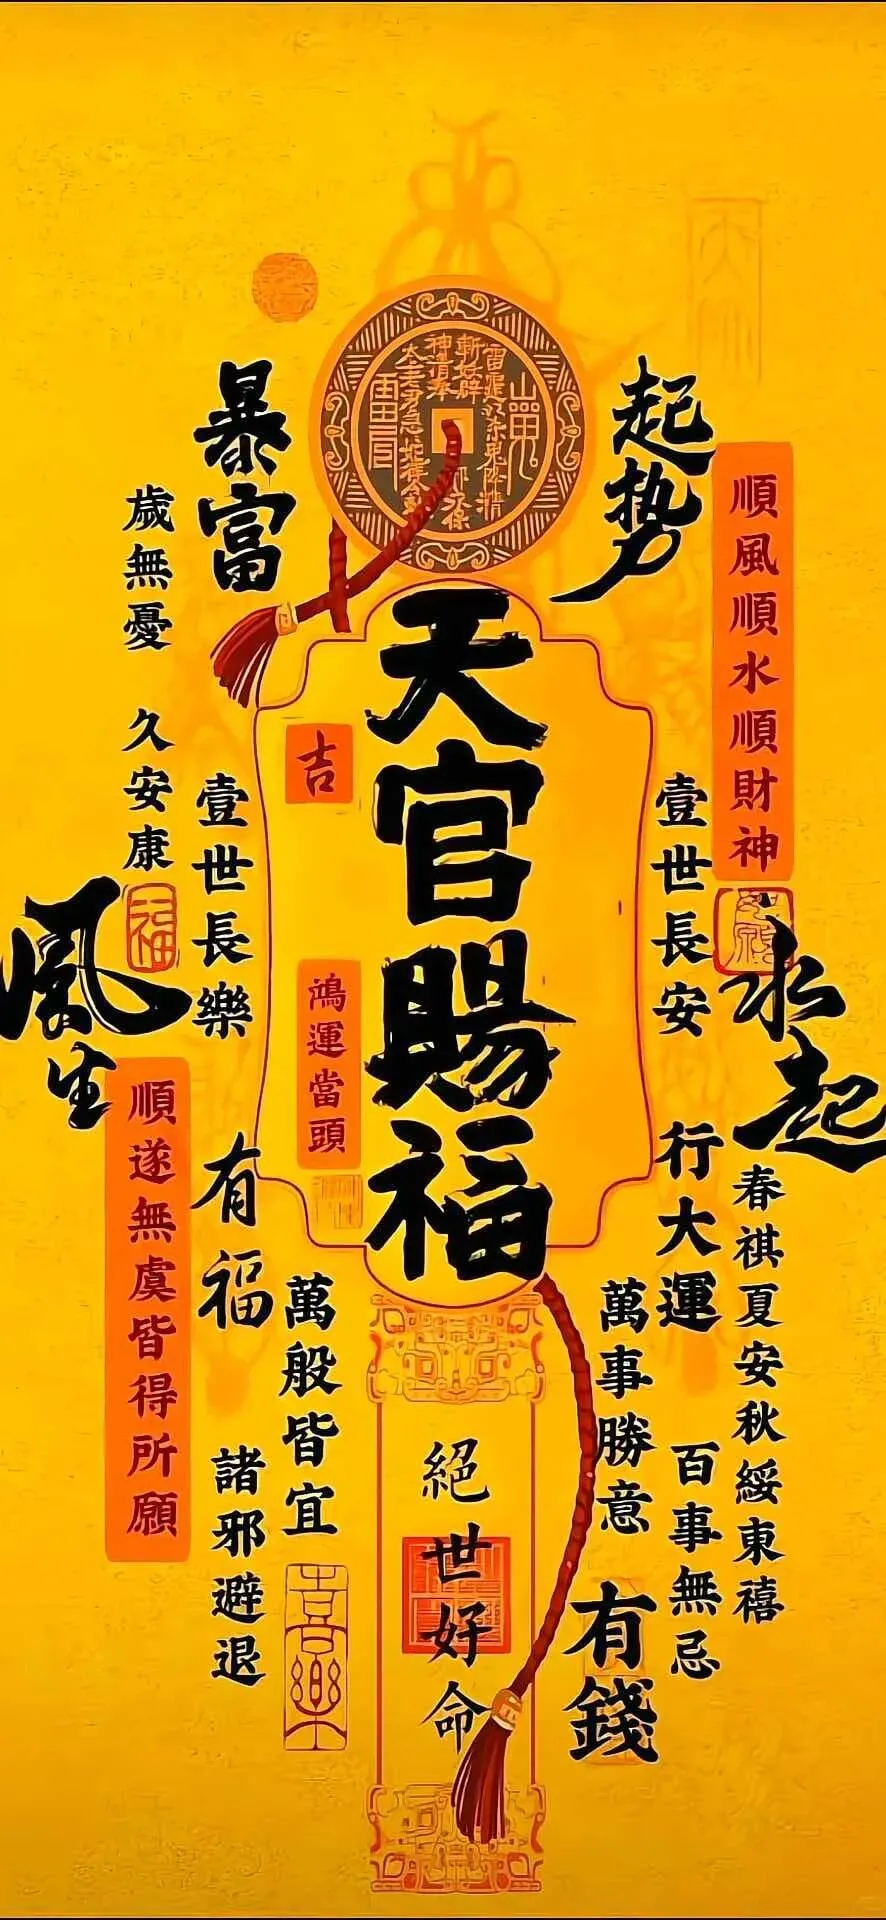 起势
順風順水順財神
水起
壹世長安
行大運
春祺夏安秋綏東禧
萬事勝意
百事無忌
有錢
天官賜福
絕世好命
吉
鴻運當頭
暴富
歲無憂 久安康
福
壹世長樂
風生
順遂無虞皆得所願
有福
萬般皆宜
諸邪避退